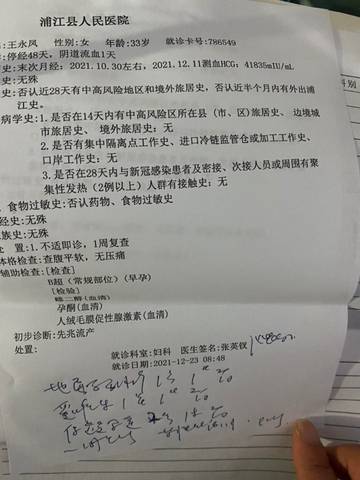 浦江县人民医院
:王永凤 性别:女 年龄:33岁 就诊卡号:786549
:停经48天，阴道流血1天
史:末次月经:2021.10.30左右，2021.12.11测血HCG: 41835mIU/mL
史:无殊
史:否认近28天有中高风险地区和境外旅居史，否认近半个月内有外出浦
江史。
病学史:1.是否在14天内有中高风险区所在县(市、区)旅居史、边境城
市旅居史、境外旅居史:无
2.是否有集中隔离点工作史、进口冷链监管仓或加工工作史、
口岸工作史:无
3.是否在28天内与新冠感染患者及密接、次接人员或周围有聚
集性发热(2例以上)人群有接触史:无
、食物过敏史:否认药物、食物过敏史
经史:无殊
族史:无殊
处 置:1.不适即诊，1周复查
体格检查:查腹平软，无压痛
辅助检查:[检查]
B超(常规部位)(早孕)
[检验]
雌二醇(血清)
孕酮(血清)
人绒毛膜促性腺激素(血清)
初步诊断:先兆流产
处置:
就诊科室:妇科 医生签名:张英钗
就诊日期:2021-12-23 08:48